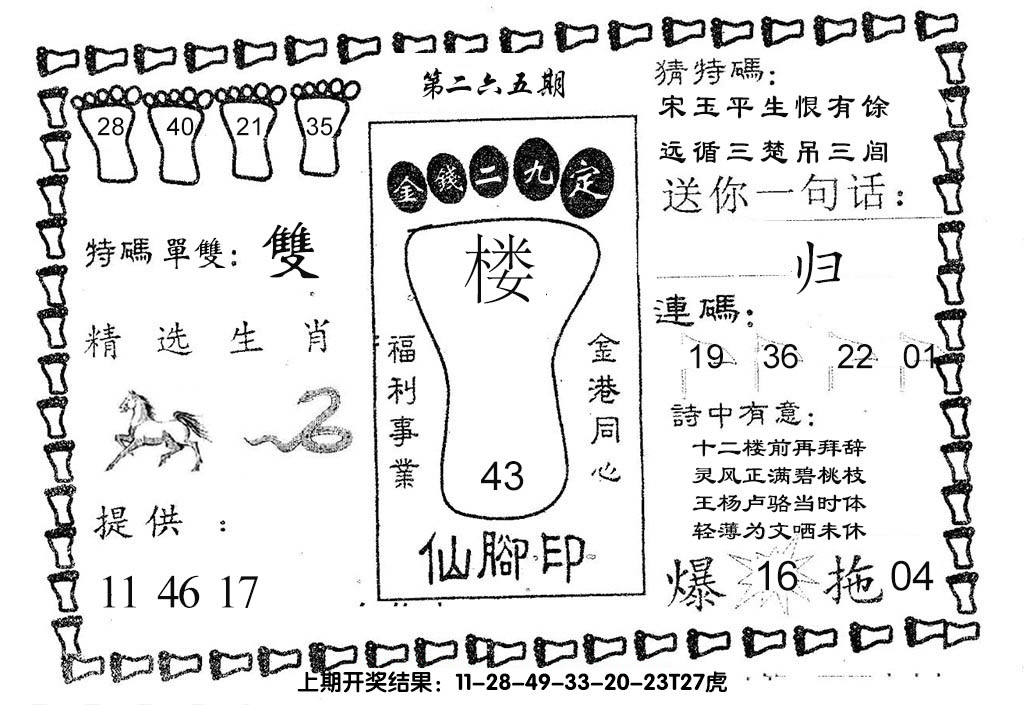 第二六五期
28 40 21 35
特碼單雙：雙
精选生肖
提供：
11 46 17
金錢二九定
楼
福利事業
金港同心
43
仙腳印
猜特碼：
宋玉平生恨有馀
远循三楚吊三闾
送你一句话：
归
連碼：
19 36 22 01
詩中有意：
十二楼前再拜辞
灵风正满碧桃枝
王杨卢骆当时体
轻薄为文哂未休
爆 16 拖 04
上期开奖结果：11-28-49-33-20-23T27虎